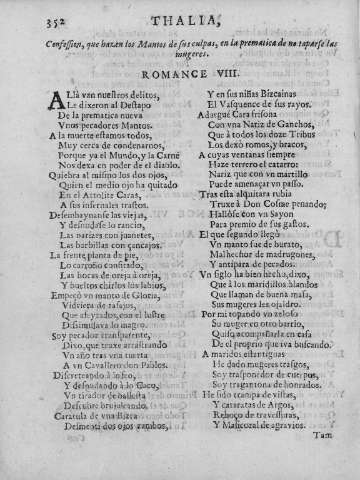 352 THALIA,
Confession, que hazen los Mantos de sus culpas, en la prematica de no taparse las
mugeres.
ROMANCE VIII.
ALlà van nuestros delitos,
Le dixeron al Destapo
De la prematica nueva
Vnos pecadores Mantos.
A la muerte estamos todos,
Muy cerca de condenarnos,
Porque ya el Mundo, y la Carne
Nos dexa en poder del diablo.
Quiebra al mismo los dos ojos,
Quien el medio ojo ha quitado
En el Caras,
A sus infernales trastos.
Desembaynanse las viejas,
Y desnudase lo rancio,
Las narizes con juanetes,
Las barbillas con çencajos.
La frente planta de pie,
Lo carguño confitado,
Las bocas de oreja à oreja,
Y bueltos chirlos los labios,
Empeçò vn manto de Gloria,
Vidriera de tasajos,
Que ahumados, con el lustre
Dissimulava lo magro.
Soy pecador transparente,
Dixo, que truxe arrastrando
Vn año tras vna tuerta
A vn Cavallero don Pablos.
Discreteando à lo feo,
Y desnudando à lo Caco,
Vn tirador de ballesta
Descubre brujuleando.
Caratula de vna Bizca
Desmentì dos ojos zambos,
Y en sus niñas Bizcainas
El Vasquence de sus rayos.
Adarguè Cara frisona
Con vna Nariz de Ganchos,
Que à todos los doze Tribus
Los dexò romos, y bracos,
A cuyas ventanas siempre
Haze terrero el catarro:
Nariz que con vn martillo
Puede amenaçar vn passo.
Tras esta alquitara rubia
Truxe à Don Cosme penando;
Hallòse con vn Sayon
Para premio de sus gastos.
El que segundo llegò
Vn manto fue de burato,
Malhechor de madrugones,
Y antipara de pecados.
Vn siglo ha bien hecho, dixo,
Que à los maridillos blandos
Que llaman de buena masa,
Sus mugeres les ojaldro.
Por mi topando vn zeloso
Su muger en otro barrio,
Quiso acompañarla en casa
De el proprio que iva buscando.
A maridos estantiguas
He dado mugeres trasgos,
Soy trasponedor de cuerpos,
Soy tragantona de honrados.
He sido trampa de vistas,
Y cataratas de Argos,
Reboço de travessuras,
Y Masicoral de agravios.
Tam